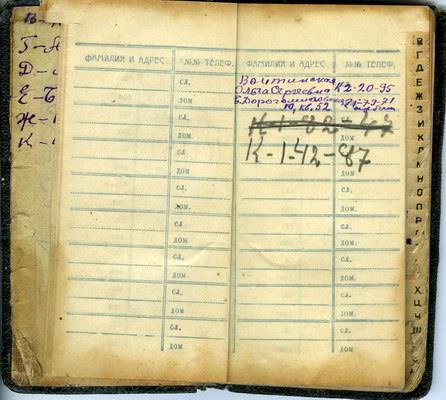 Г-
Д-
Е-Б
Ж-
К-
ФАМИЛИЯ И АДРЕС №№ ТЕЛЕФ.
сл.
дом
сл.
дом.
сл.
дом
сл.
дом.
сл.
дом.
сл.
дом
сл.
дом
сл.
дом
ФАМИЛИЯ И АДРЕС №№ ТЕЛЕФ.
Войтинская К 2-20-95
Ольга Сергеевна
Б. Дорогомиловская
10, кв. 52
К-1-42-87
дом
сл.
дом
сл.
дом.
сл.
дом
сл.
дом
сл.
дом
В
Г
Д
Е
Ж
З
И
К
Л
М
Н
О
П
Р
Х
Ц
Ч
Ш